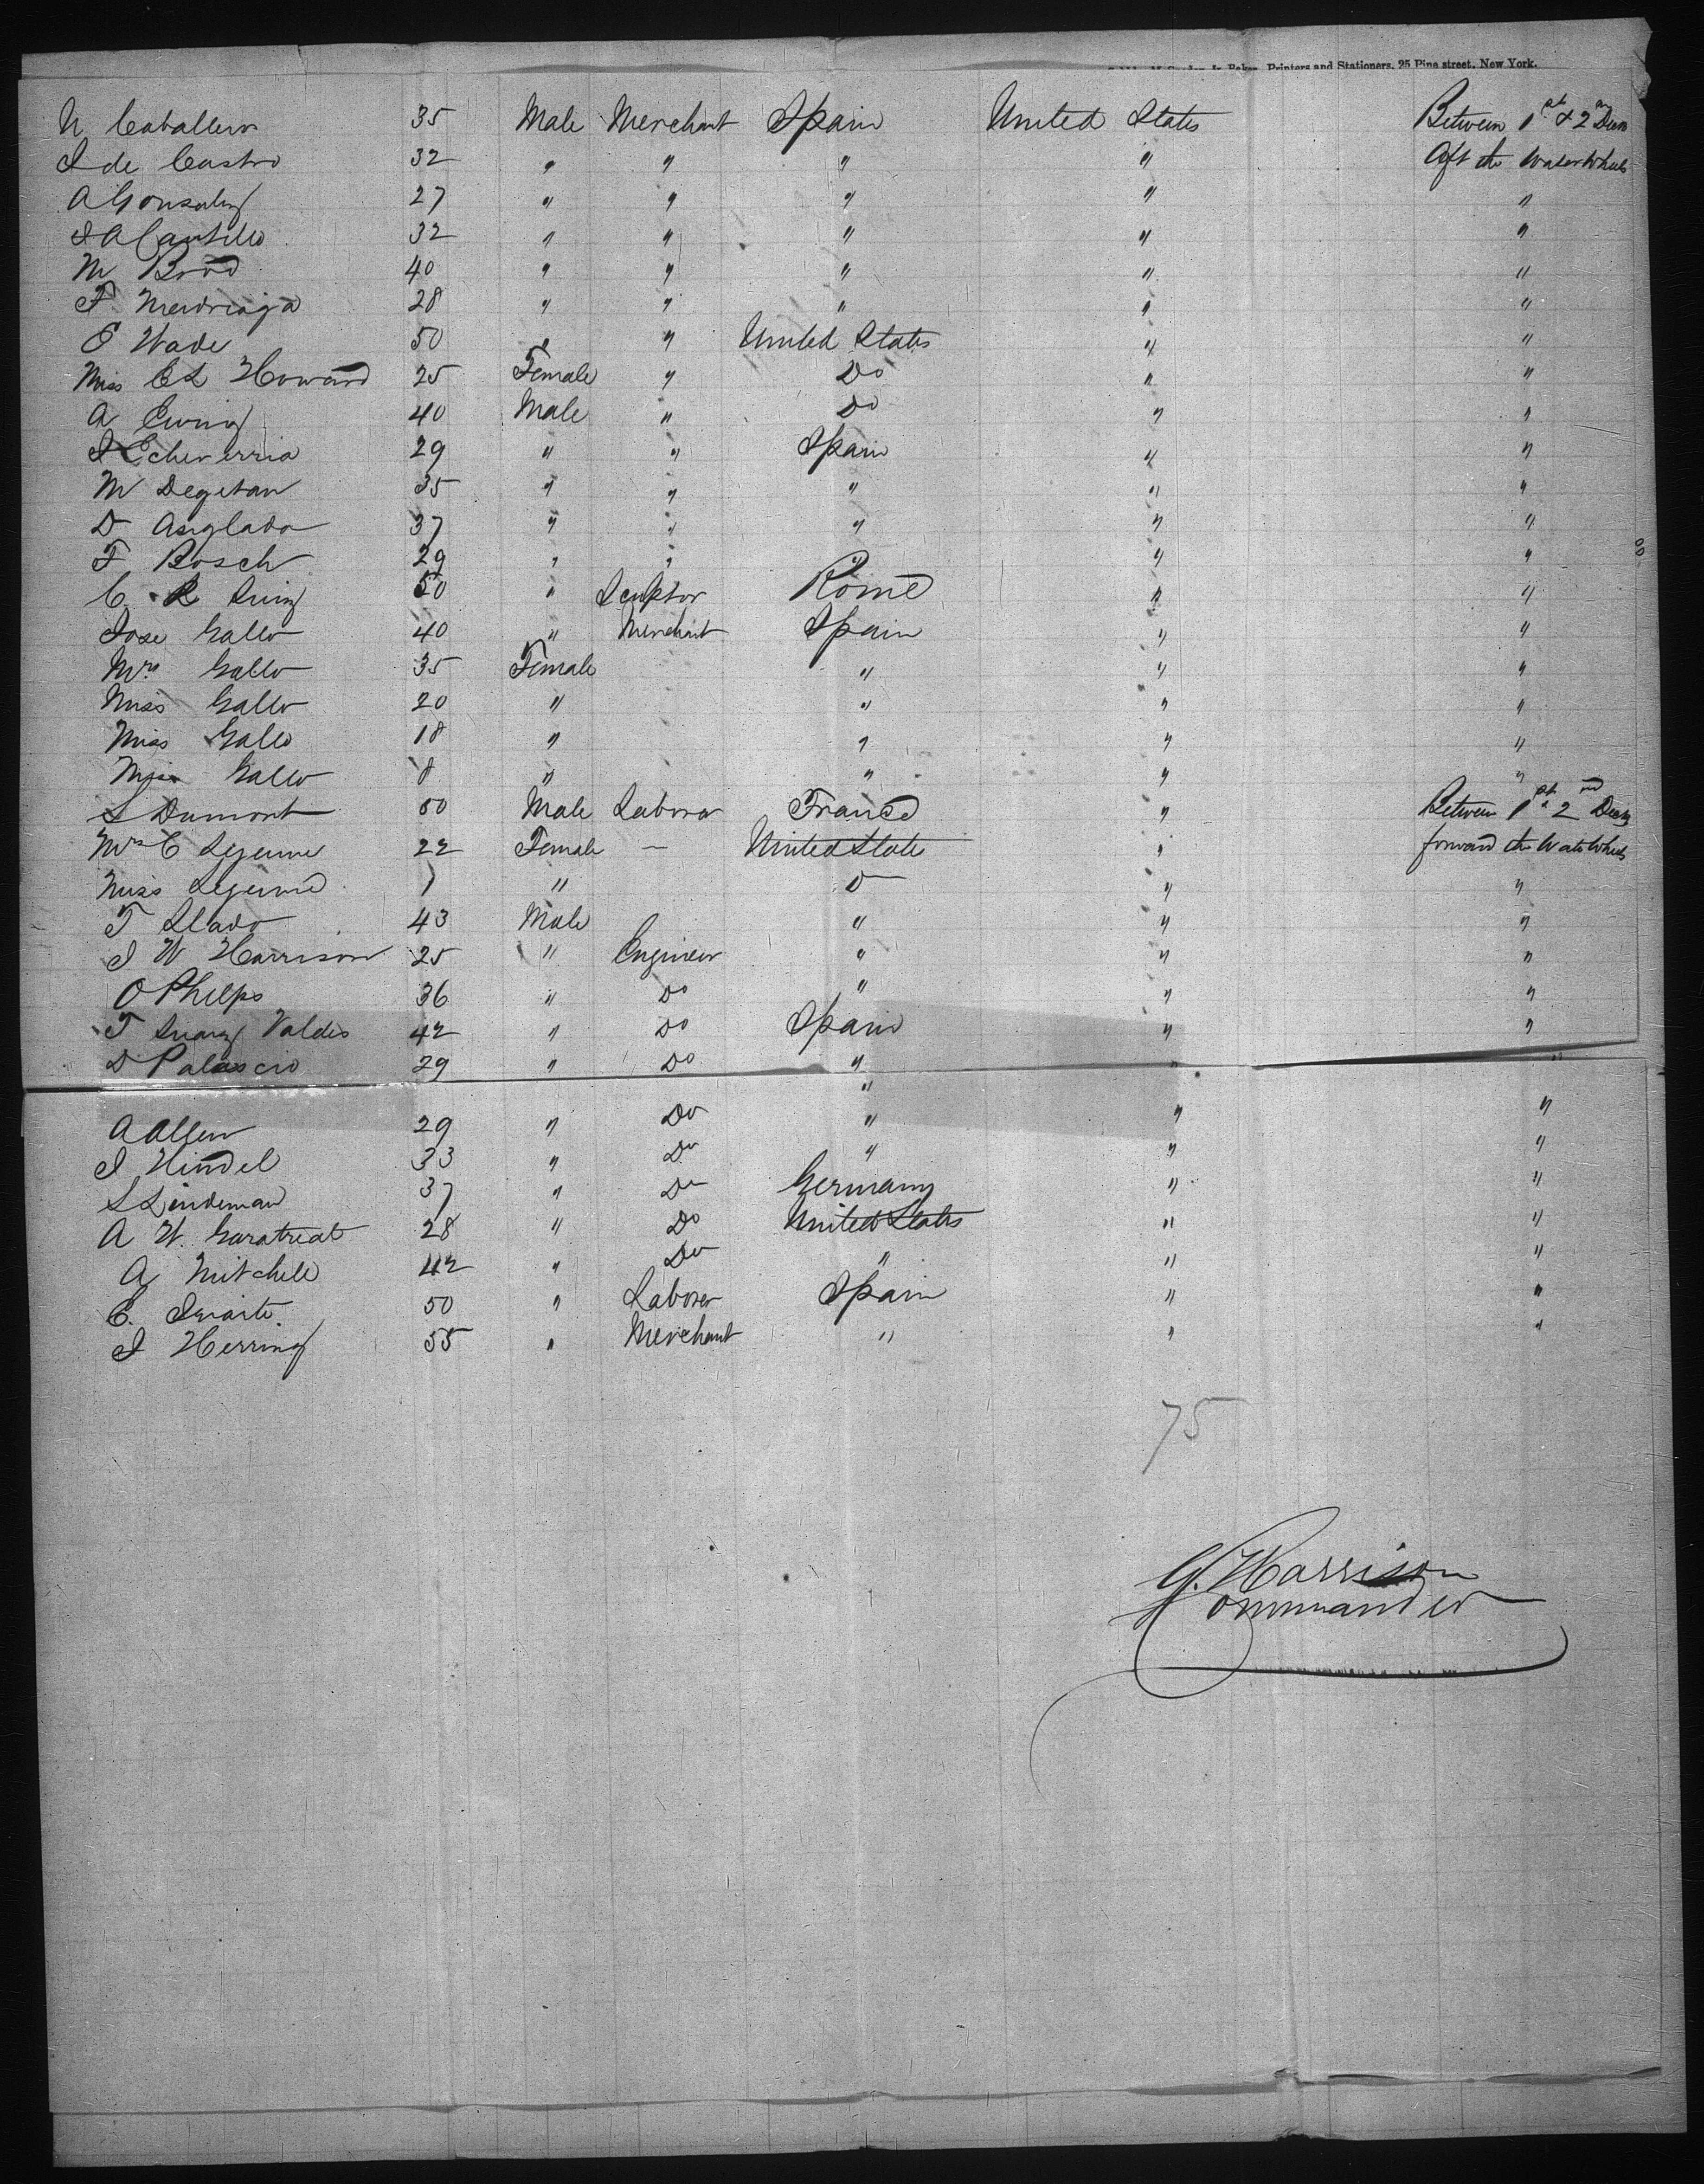 Printers and Stationers, 25 Pine street, New York.
N Caballero 35 Male Merchant Spain United States Between 1st & 2nd Decks
I de Castro 32 " " " " Aft the Water Wheels
A Gonsalez 27 " " " " "
I A Cantillo 32 " " " " "
M Brod 40 " " " " "
F Mendriaga 28 " " " " "
E Wade 50 " " United States " "
Miss C L Howard 25 Female " Do " "
A Ewing 40 Male " Do " "
I Echeverria 29 " " Spain " "
M Degetau 35 " " " " "
D Anglada 37 " " " " "
F Bosch 29 " " " " "
C R 50 " Sculptor Rome " "
Jose Gallo 40 " Merchant Spain " "
Mrs Gallo 35 Female " " "
Miss Gallo 20 " " " "
Miss Gallo 18 " " " "
Miss Gallo 8 " " " "
L Dumont 50 Male Labora France " Between 1st & 2nd Decks
Mrs C Lejeune 22 Female — United States " forward the Water Wheels
Miss Lejeune 1 " D " "
T Llado 43 Male " " "
I W Harrison 25 " Engineer " " "
O Phelps 36 " Do " " "
T Suarez Valdes 42 " Do Spain " "
D Palascio 29 " Do " " "
"
A Allen 29 " Do " " "
I Hindel 33 " Do " " "
L Lindeman 37 " Do Germany " "
A W. 28 " Do United States " "
A Mitchell 42 " Do " " "
E. 50 " Laborer Spain " "
I Herring 55 " Merchant " " "
75
G. Harrison
Commander